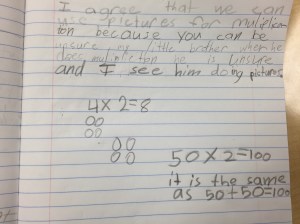 I agree that we can
use pictures for multiplica
tion because you can be
unsure my little brother when he
does multiplication he is unsure
and I see him doing pictures
4 x 2=8
50 x 2=100
it is the same
as 50+50=100